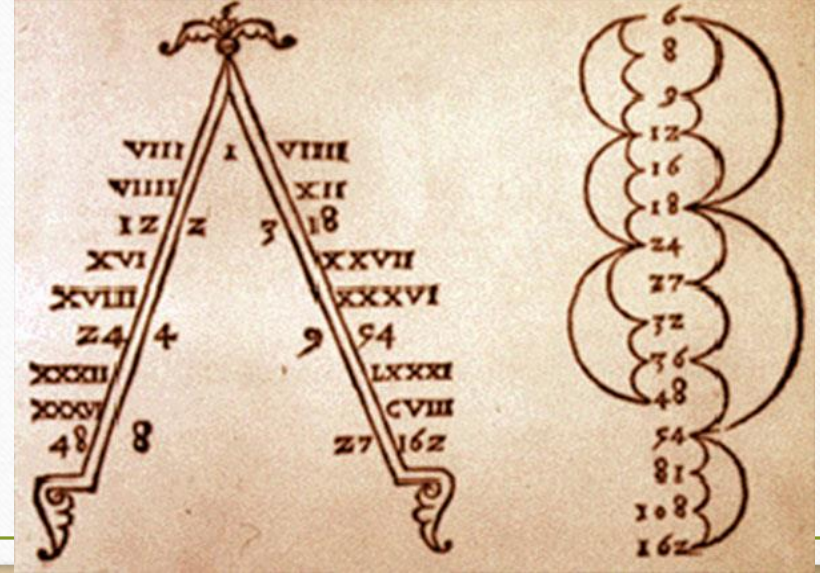 VIII 1 VIIII
VIIII XII
12 2 3 18
XVI XXVII
XVIII XXXVI
24 4 9 54
XXXII LXXXI
XXXVI CVIII
48 8 27 162
6
8
9
12
16
18
24
27
32
36
48
54
81
108
162